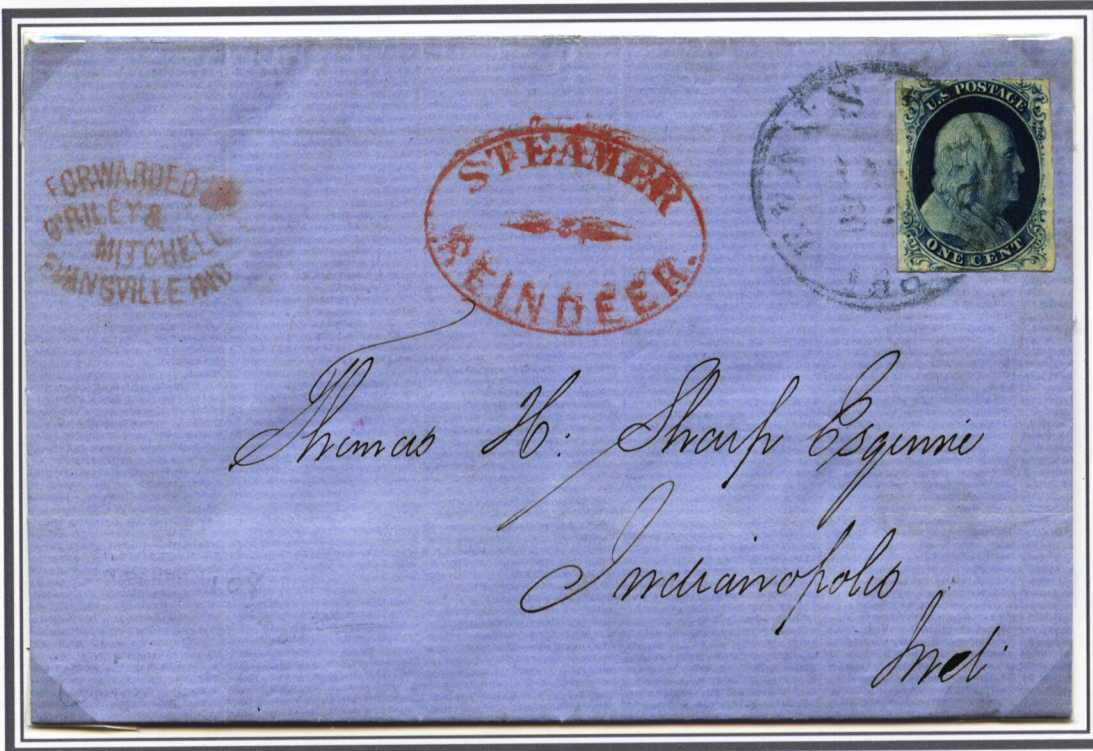 FORWARDED
O'RILEY &
MITCHELL
EVANSVILLE IND
STEAMER
REINDEER.
U.S. POSTAGE
ONE CENT
Thomas H. Sharp Esquire
Indianopolis
Indi